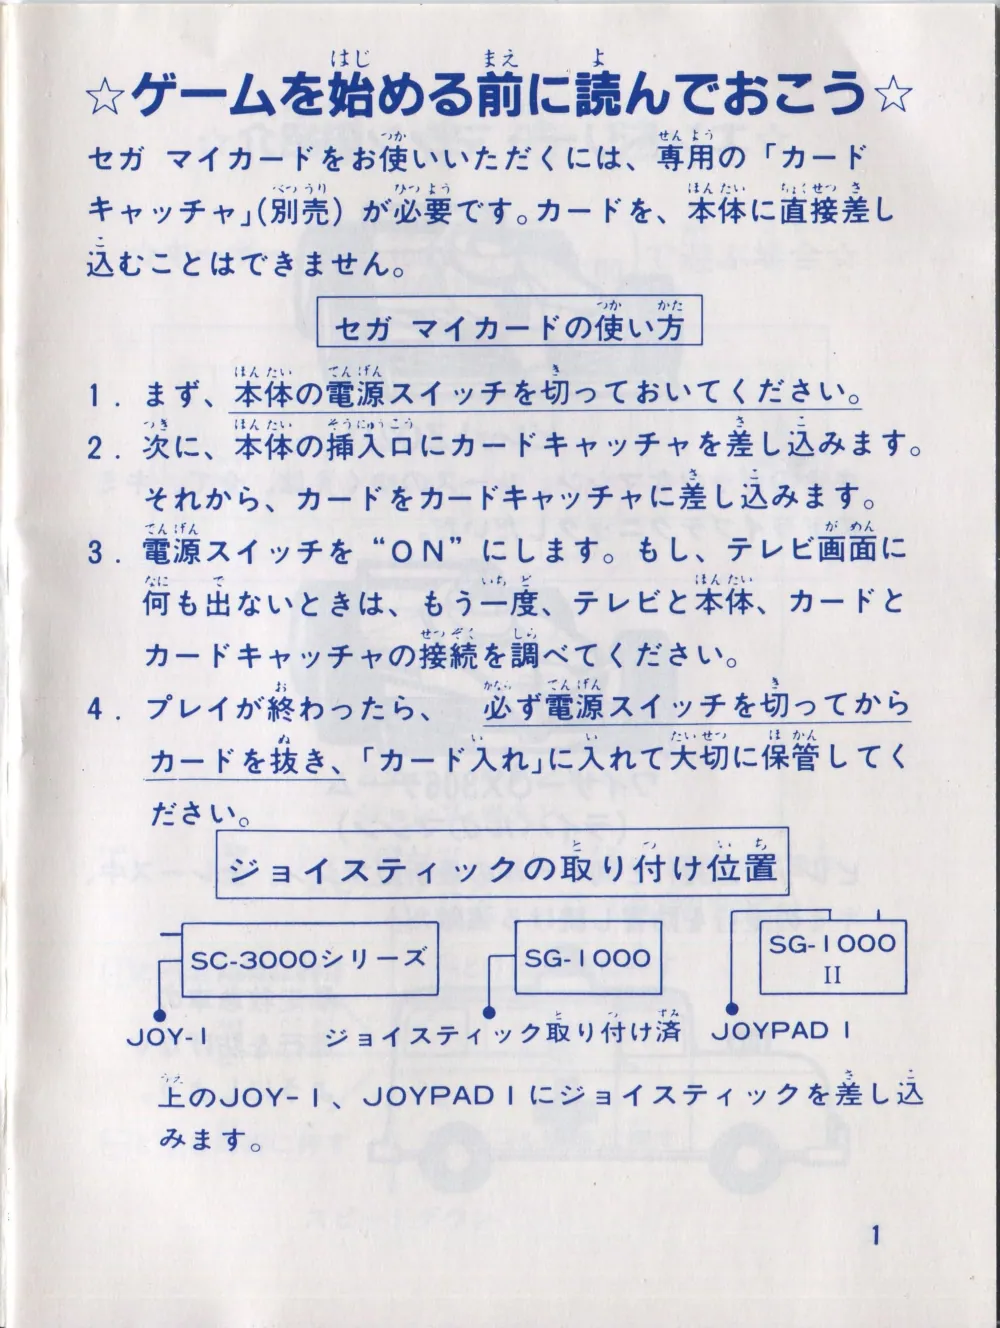 ☆ゲームを始める前に読んでおこう☆
セガ マイカードをお使いいただくには、専用の「カード
キャッチャ」(別売) が必要です。カードを、本体に直接差し
込むことはできません。
セガ マイカードの使い方
1. まず、本体の電源スイッチを切っておいてください。
2. 次に、本体の挿入口にカードキャッチャを差し込みます。
それから、カードをカードキャッチャに差し込みます。
3. 電源スイッチを “ON” にします。もし、テレビ画面に
何も出ないときは、もう一度、テレビと本体、カードと
カードキャッチャの接続を調べてください。
4. プレイが終わったら、 必ず電源スイッチを切ってから
カードを抜き、「カード入れ」に入れて大切に保管してく
ださい。
ジョイスティックの取り付け位置
SC-3000シリーズ
SG-1000
SG-1000
II
JOY-1
ジョイスティック取り付け済
JOYPAD 1
上のJOY-1、JOYPAD1にジョイスティックを差し込
みます。
1